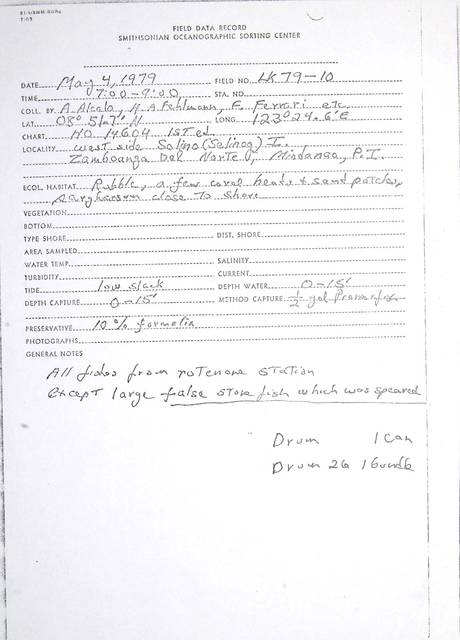 FIELD DATA RECORD
SMITHSONIAN OCEANOGRAPHIC SORTING CENTER
DATE May 4, 1979 FIELD NO. LK 79-10
TIME 7:00-9:00 STA. NO.
COLL. BY A. Alcala, H. A. Fehlmann, F. Ferrari etc.
LAT. 08° 51.2' N LONG. 123° 24.6' E
CHART HO 14604 1st ed
LOCALITY west side Salino (Selinog) I.
Zamboanga Del Norte, Mindanao, P.I.
ECOL. HABITAT Rubble, a few coral heads & sand patches,
Sarghassum close To shore
VEGETATION
BOTTOM
TYPE SHORE DIST. SHORE
AREA SAMPLED
WATER TEMP. SALINITY
TURBIDITY CURRENT
TIDE low slack DEPTH WATER 0-15'
DEPTH CAPTURE 0-15' METHOD CAPTURE 1/2 gal Pronoxfish
PRESERVATIVE 10% formalin
PHOTOGRAPHS
GENERAL NOTES
All fishes from rotenone station
Except large false stone fish which was speared
Drum 1 Can
Drum 26 1 bundle